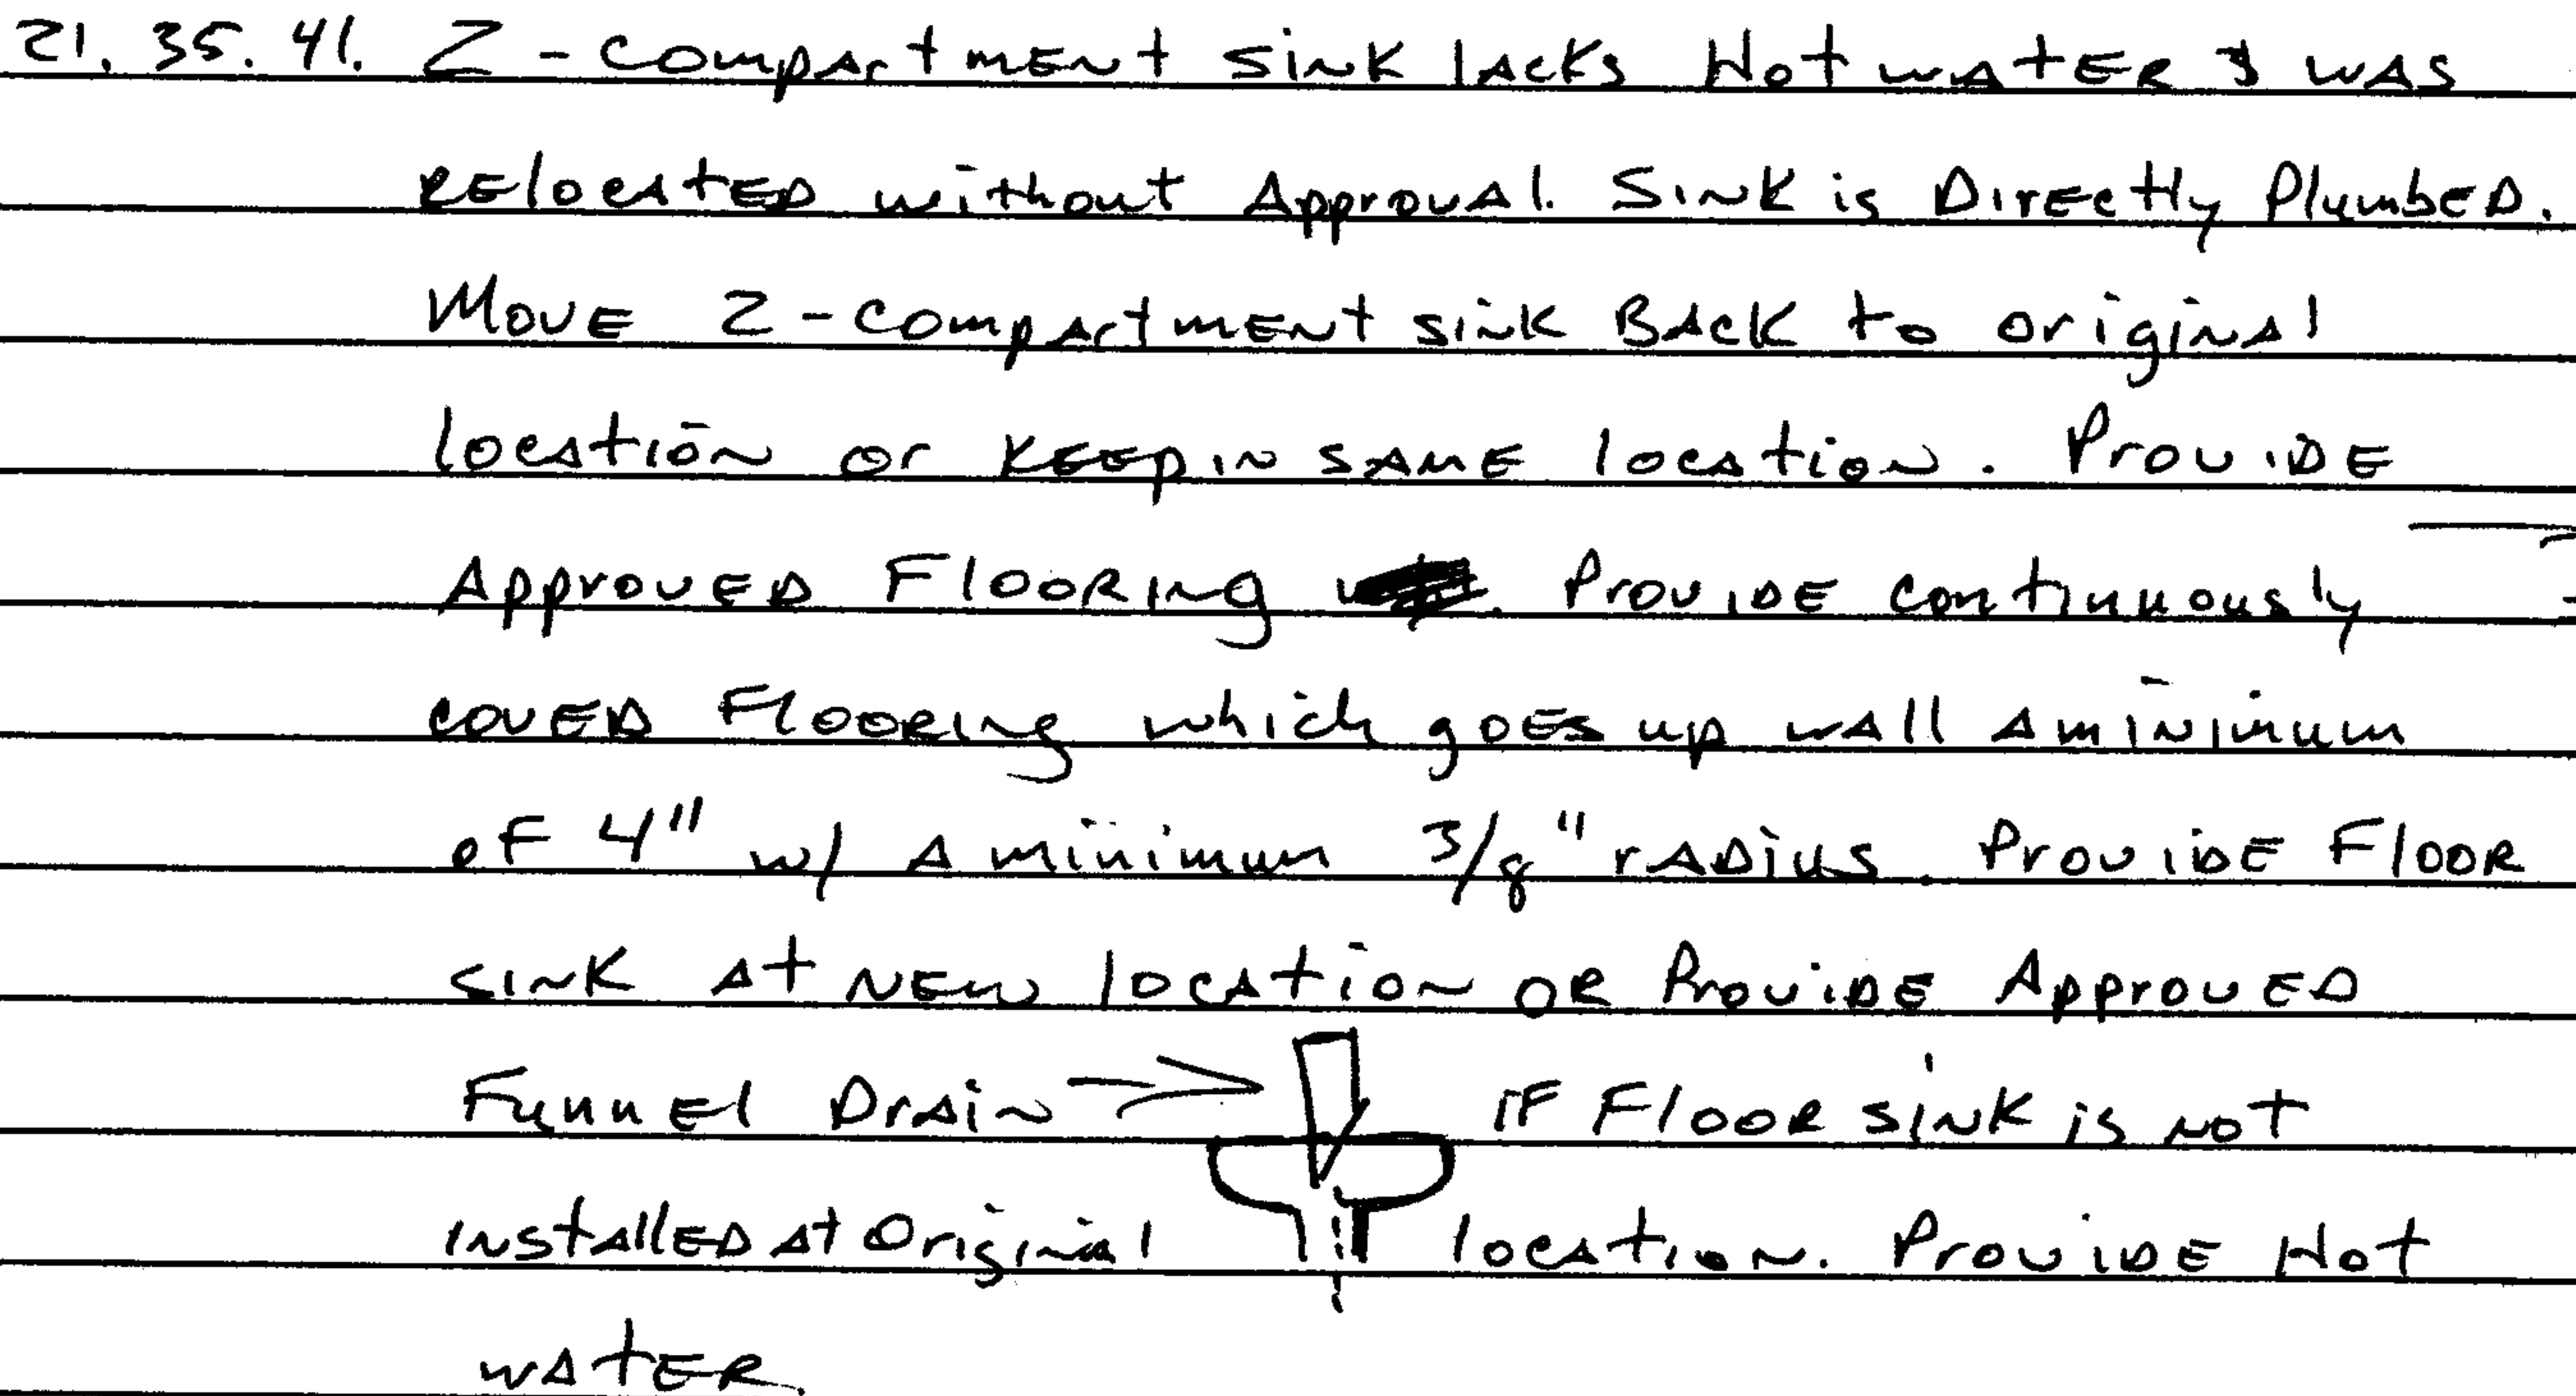 21. 35. 41. 2-Compartment sink lacks Hot water & was
relocated without Approval. Sink is Directly Plumbed.
Move 2-compartment sink Back to original
location or keep in same location. Provide
Approved Flooring. Provide continuously
coved Flooring which goes up wall a minimum
of 4" w/ a minimum 3/8" radius. Provide Floor
sink at new location or Provide Approved
Funnel Drain → if Floor sink is not
installed at original location. Provide Hot
water.